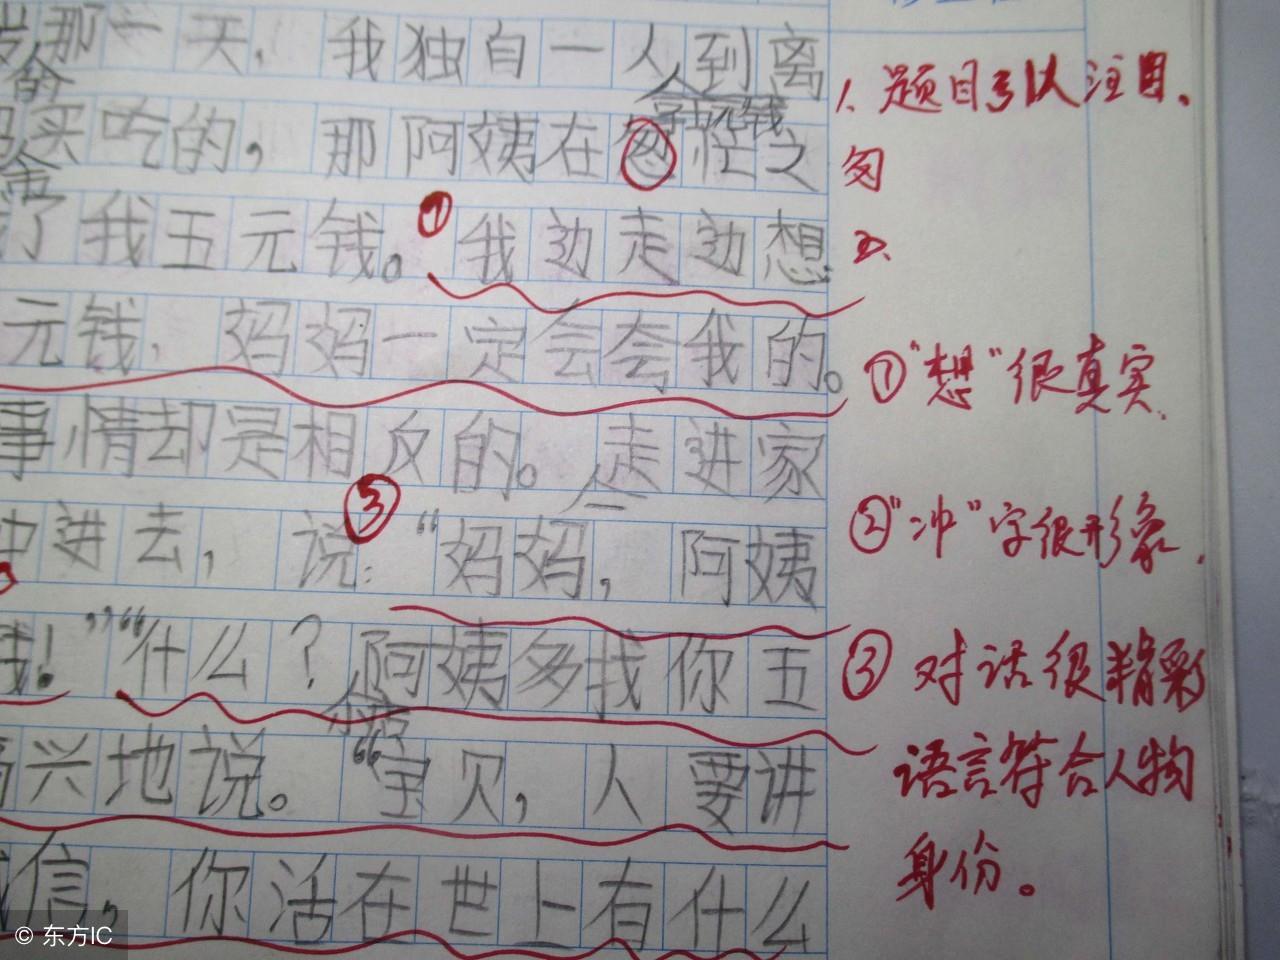 那一天，我独自一人到离
的
买吃的，那阿姨在匆忙之
了我五元钱。我边走边想：
元钱，妈妈一定会夸我的。
事情却是相反的。走进家
冲进去，说：“妈妈，阿姨
钱！”“什么？阿姨多找你五
高兴地说。“宝贝，人要讲
诚信，你活在世上有什么
1、题目引以注目。
匆
①“想”很真实。
②“冲”字很形象。
③对话很精彩
语言符合人物
身份。
① ② ③
© 东方IC